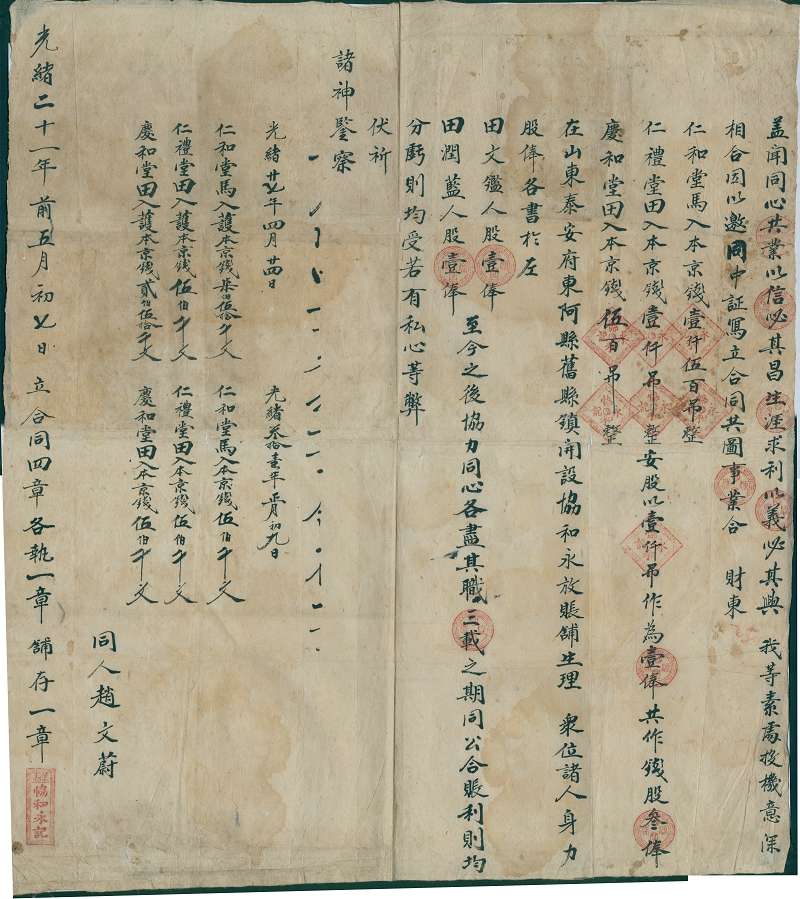 盖聞同心共業以信必其昌生涯求利以義必其興　我等素處投機意深
相合因以邀同中証寫立合同共圖事業合　財東
仁和堂馬入本京錢壹仟伍百吊整
仁禮堂田入本京錢壹仟吊整安股以壹仟吊作為壹俸共作錢股叁俸
慶和堂田入本京錢伍百吊整
在山東泰安府東阿縣舊縣鎮開設協和永放賬舖生理　衆位諸人身力
股俸各書於左
田文鑑人股壹俸
田潤藍人股壹俸　至今之後協力同心各盡其職三載之期同公合賬利則均
分虧則均受若有私心等弊
伏祈
諸神鑒察
光緒廿七年四月廿四日
仁和堂馬入護本京錢柒百伍拾千文
仁禮堂田入護本京錢伍伯千文
慶和堂田入護本京錢貳伯伍拾千文
光緒叁拾壹年正月初九日
仁和堂馬入本京錢伍伯千文
仁禮堂田入本京錢伍伯千文
慶和堂田入本京錢伍伯千文
同人趙文蔚
光緒二十一年前五月初七日立合同四章各執一章舖存一章
協和永記